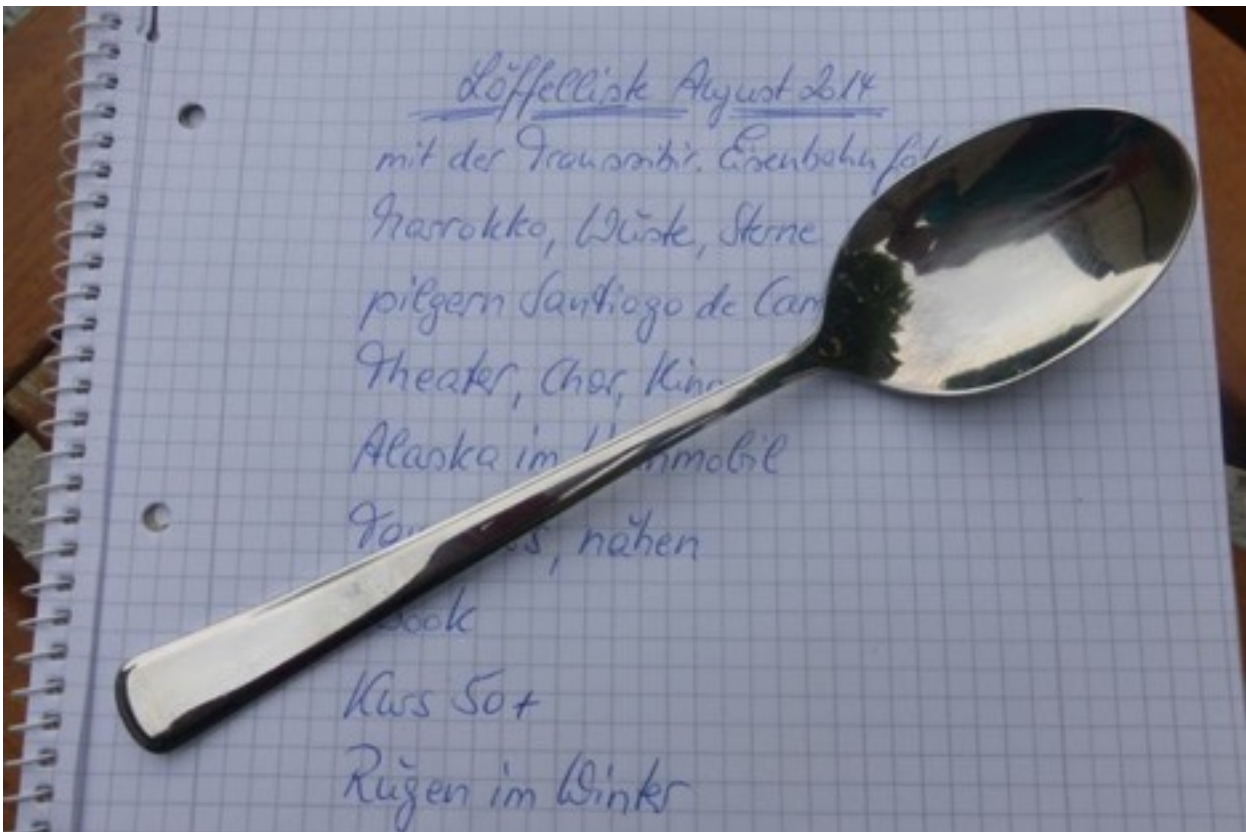 Löffelliste August 2014
mit der Transsibir. Eisenbahn
Marokko, Wüste, Sterne
pilgern Santiago de
Theater, Chor,
Alaska im
nähen
Kurs 50+
Rügen im Winter